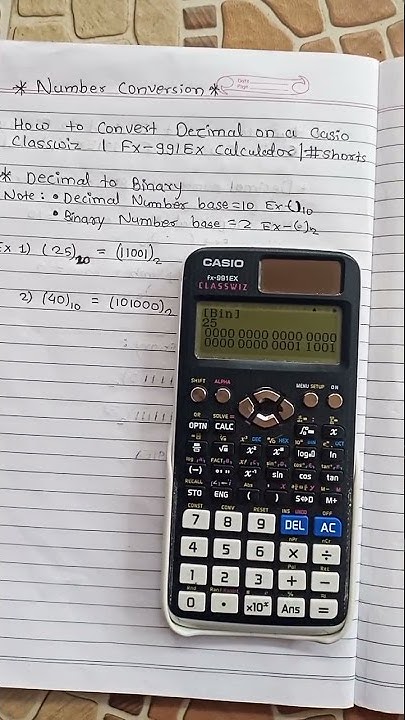 * Number Conversion *
Date
Page
How to Convert Decimal on a Casio
Classwiz | Fx-991Ex Calculator | #shorts
* Decimal to Binary
Note: • Decimal Number base=10 Ex-()10
• Binary Number base=2 Ex-()2
Ex 1) (25)10 = (11001)2
2) (40)10 = (101000)2
CASIO
fx-991EX
CLASSWIZ
[Bin]
25
0000 0000 0000 0000
0000 0000 0001 1001
SHIFT ALPHA MENU SETUP ON
SOLVE =
OPTN CALC x
log ln
(-) sin cos tan
RECALL
STO ENG ( ) S⇔D M+
CONST CONV RESET INS UNDO OFF
7 8 9 DEL AC
nPr nCr
4 5 6 × ÷
1 2 3 + −
0 • ×10x Ans =